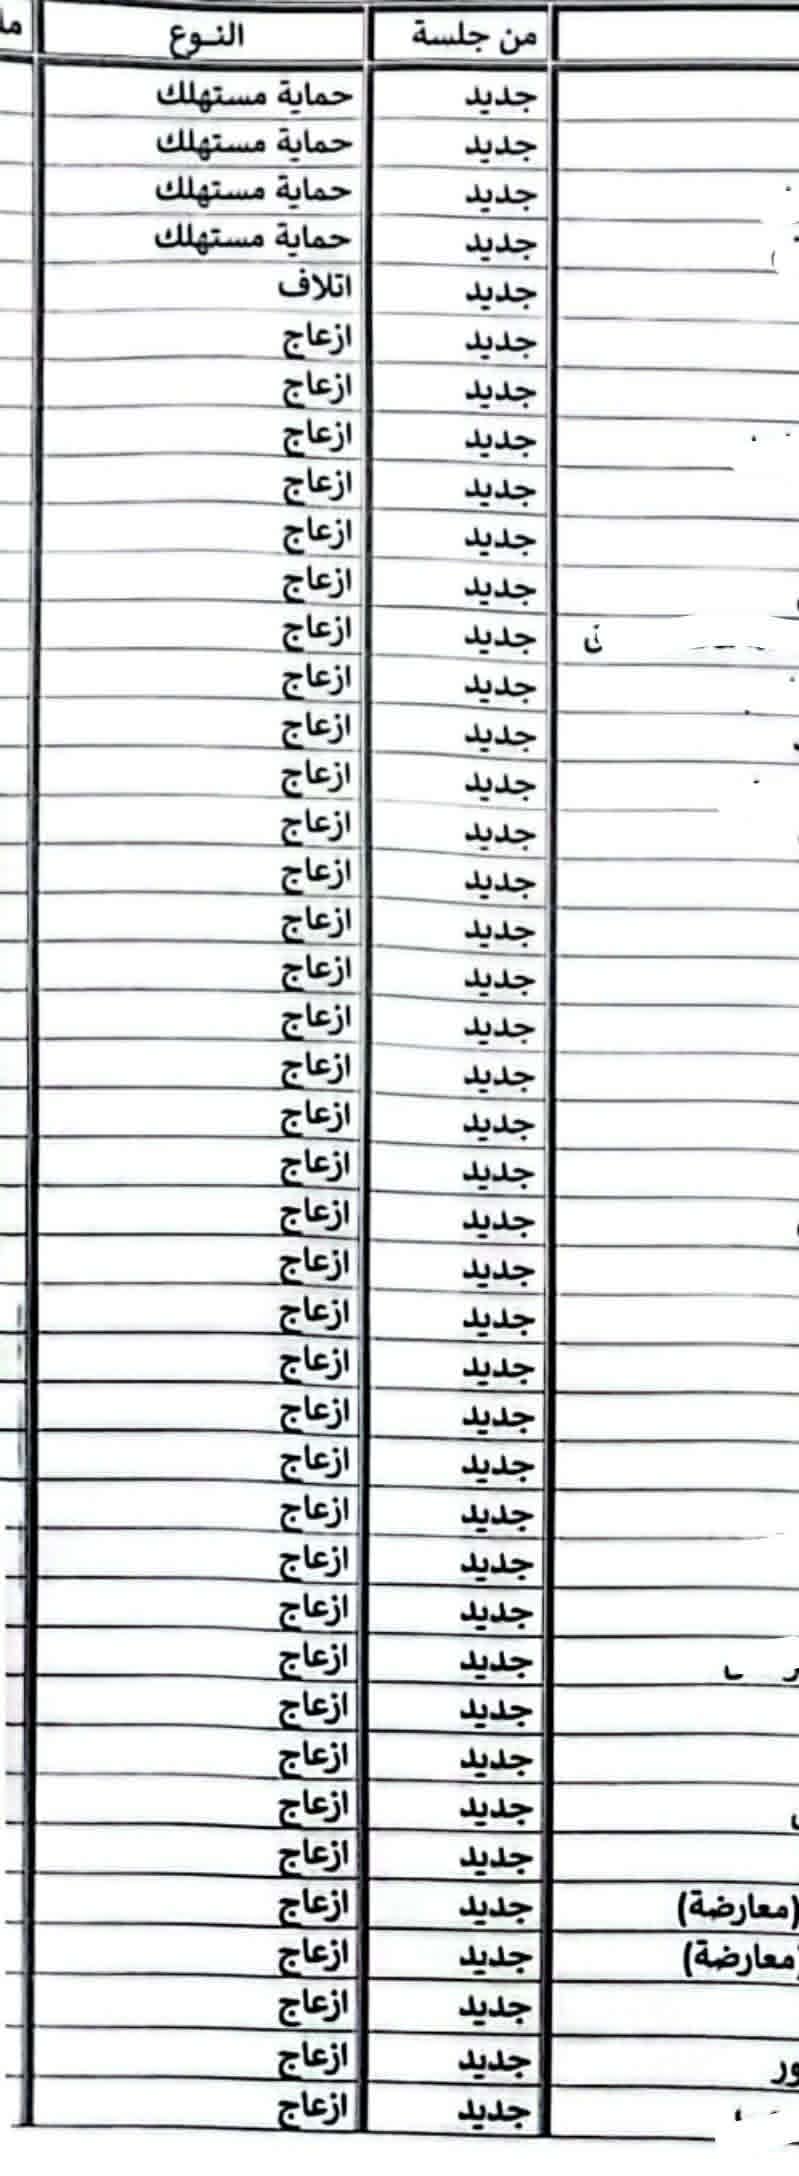 من جلسة النـوع
جديد حماية مستهلك
جديد حماية مستهلك
جديد حماية مستهلك
جديد حماية مستهلك
جديد اتلاف
جديد ازعاج
جديد ازعاج
جديد ازعاج
جديد ازعاج
جديد ازعاج
جديد ازعاج
جديد ازعاج
جديد ازعاج
جديد ازعاج
جديد ازعاج
جديد ازعاج
جديد ازعاج
جديد ازعاج
جديد ازعاج
جديد ازعاج
جديد ازعاج
جديد ازعاج
جديد ازعاج
جديد ازعاج
جديد ازعاج
جديد ازعاج
جديد ازعاج
جديد ازعاج
جديد ازعاج
جديد ازعاج
جديد ازعاج
جديد ازعاج
جديد ازعاج
جديد ازعاج
جديد ازعاج
جديد ازعاج
جديد ازعاج
(معارضة) جديد ازعاج
(معارضة) جديد ازعاج
جديد ازعاج
جديد ازعاج
جديد ازعاج